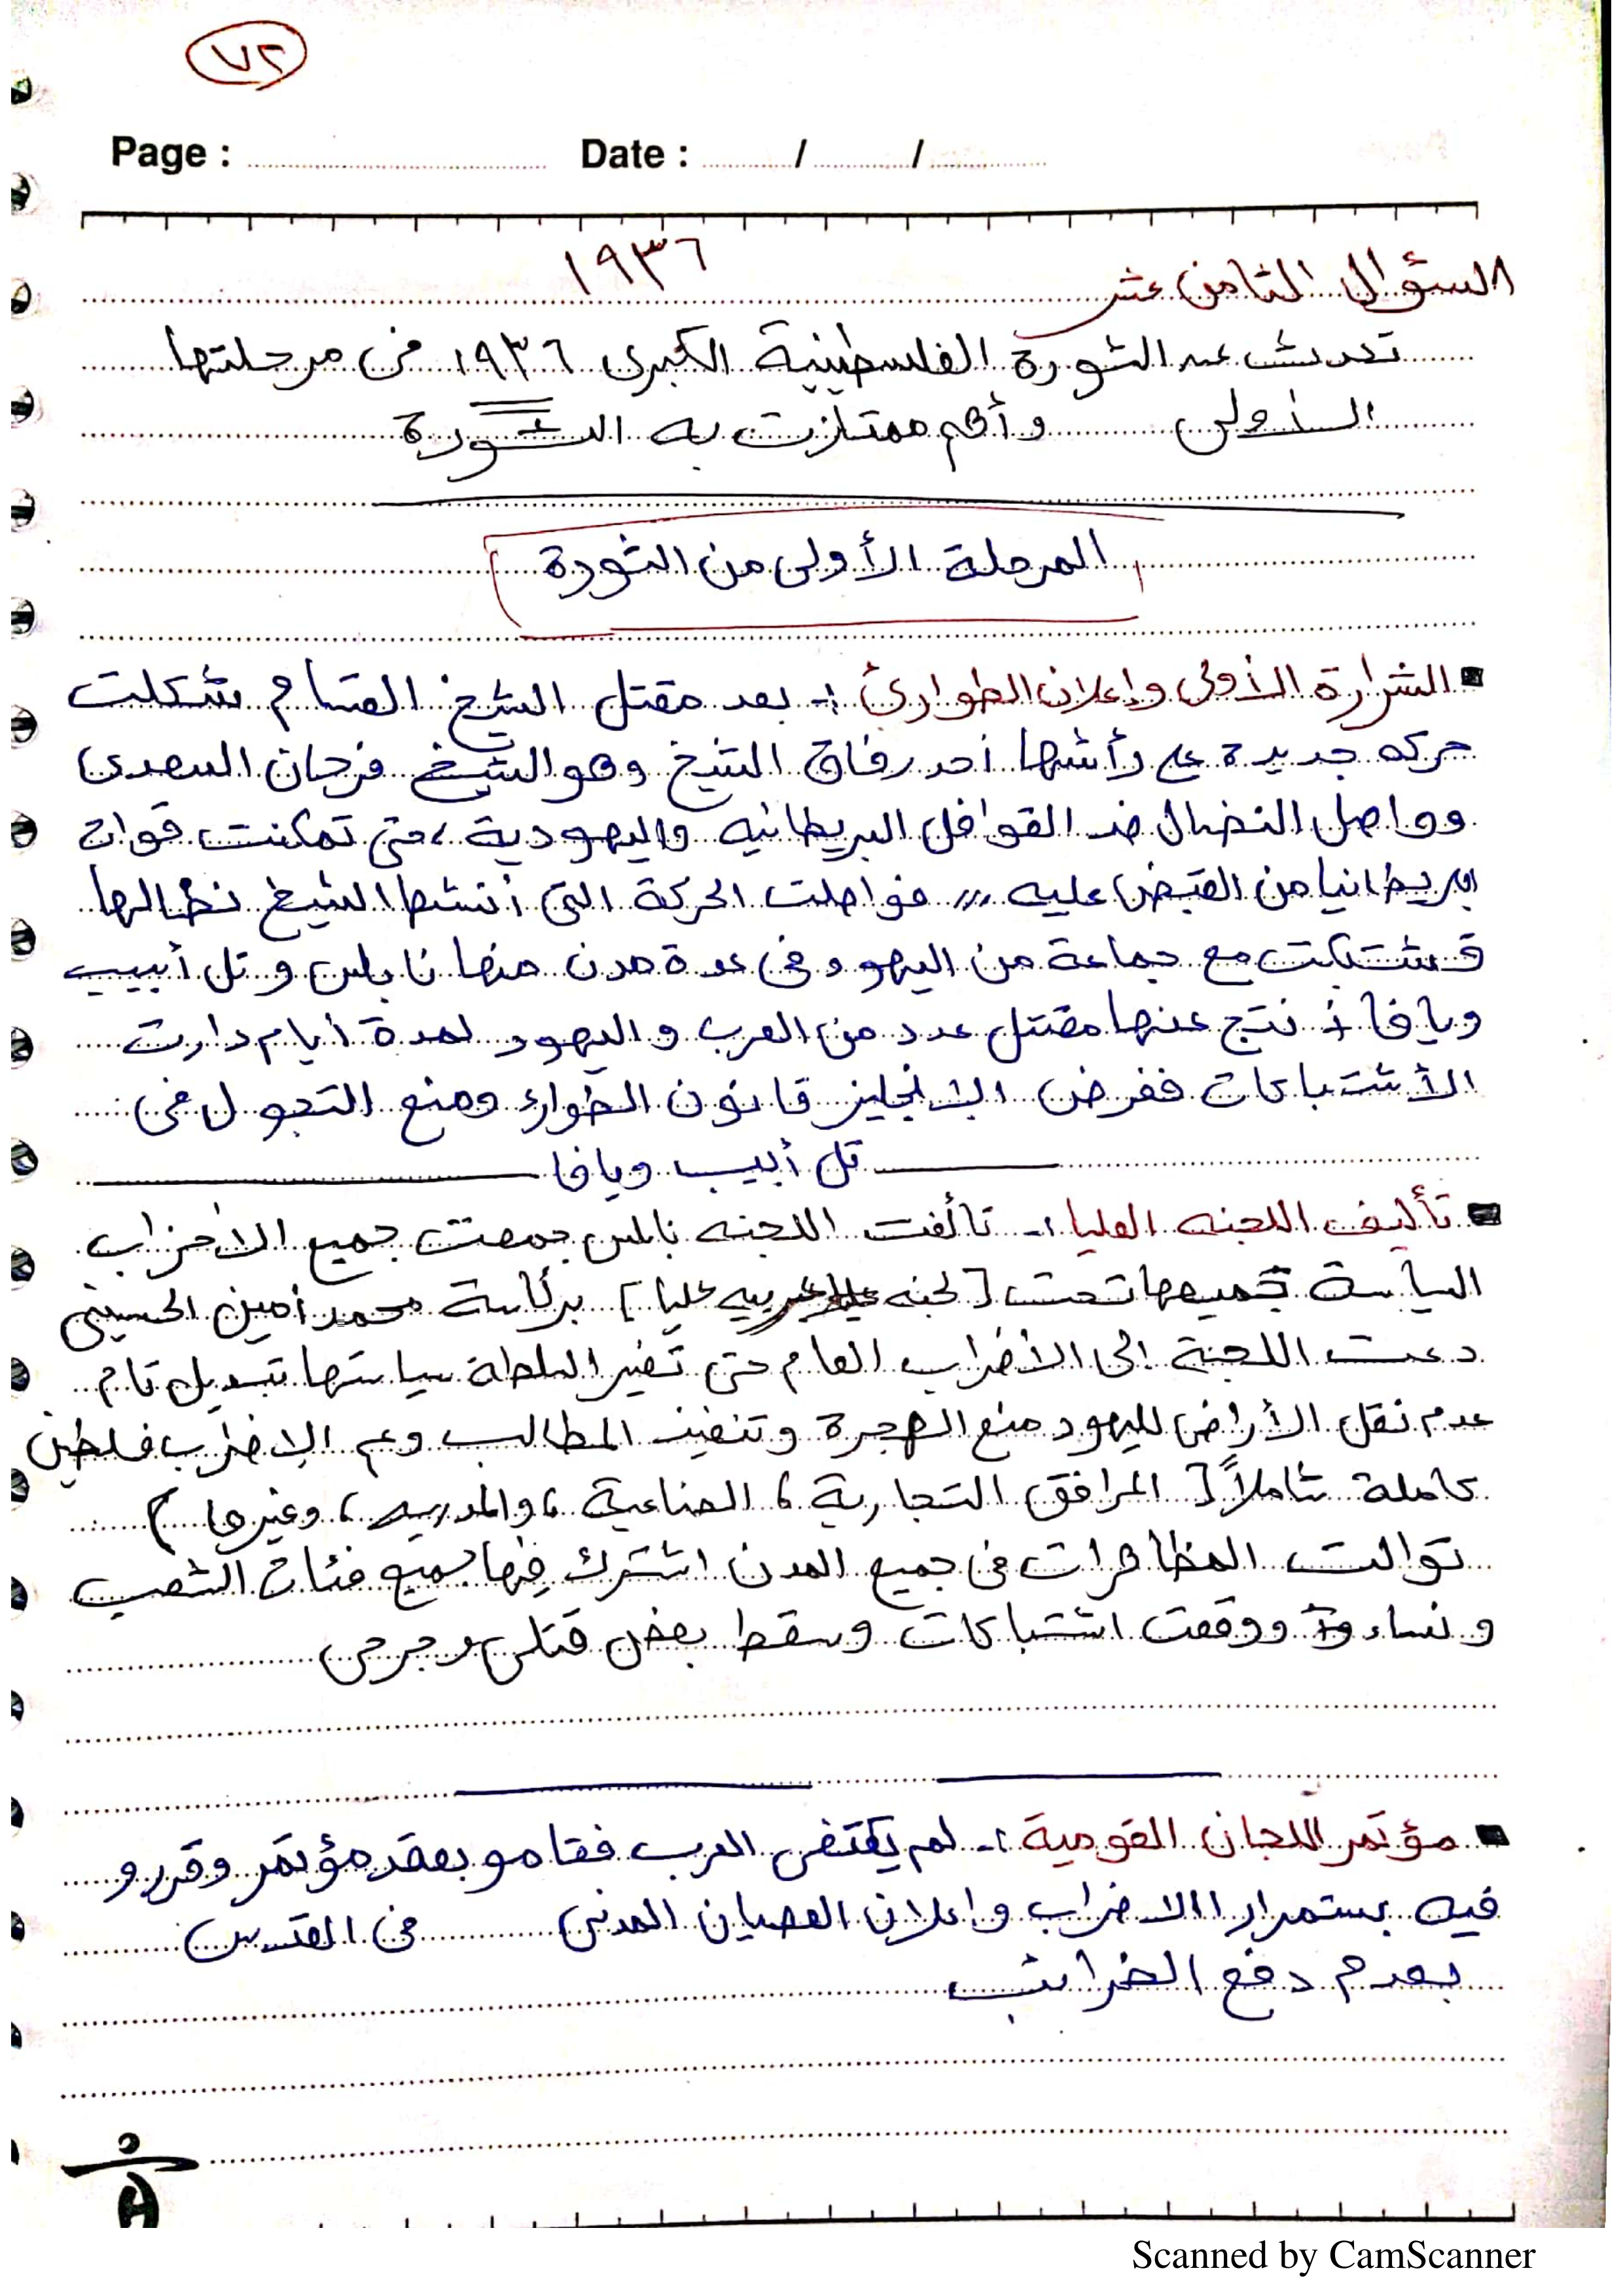 ٧٢
Page : Date : / /
١٩٣٦
السؤال الثامن عشر
تحدث عن الثورة الفلسطينية الكبرى ١٩٣٦ فى مرحلتها
الأولى وأهم ممتازت به الثورة
المرحلة الأولى من الثورة
الشرارة الأولى وإعلان الطوارئ :- بعد مقتل الشيخ القسام شكلت
حركه جديدة على رأسها أحد رفاق الشيخ وهو الشيخ فرحان السعدى
وواصل النضال ضد القوافل البريطانيه واليهودية ، حتى تمكنت قوات
بريطانيا من القبض عليه ,,, فواصلت الحركة التى أنشئها الشيخ نظالها
فشتبكت مع جماعة من اليهود فى عدة مدن منها نابلس وتل أبيب
ويافا نتج عنها مقتل عدد من العرب واليهود لمدة أيام دارت
الأشتباكات ففرض الإنجليز قانون الطوارئ ومنع التجول فى
تل أبيب ويافا
تأليف اللجنه العليا :- تألفت اللجنه نابلس جمعت جميع الأحزاب
السياسة جميعها تحت [ لجنه عربيه عليا ] برئاسة محمد أمين الحسينى
دعت اللجنة إلى الأضراب العام حتى تغير السلطة سياستها تبديل تام
عدم نقل الأراضى لليهود منع الهجرة وتنفيذ المطالب وعم الإضراب فلسطين
كاملة شاملاً [ المرافق التجارية ، الصناعية ، والمدرسيه ، وغيرها )
توالت المظاهرات فى جميع المدن اشترك فيها جميع فئات الشعب
ونساء ووقعت اشتباكات وسقط بعض قتلى وجرحى
مؤتمر اللجان القومية :- لم يكتفى العرب فقامو بعقد مؤتمر وقررو
فيه بستمرار الاضراب وإعلان العصيان المدنى فى القدس
بعدم دفع الضرائب
Scanned by CamScanner